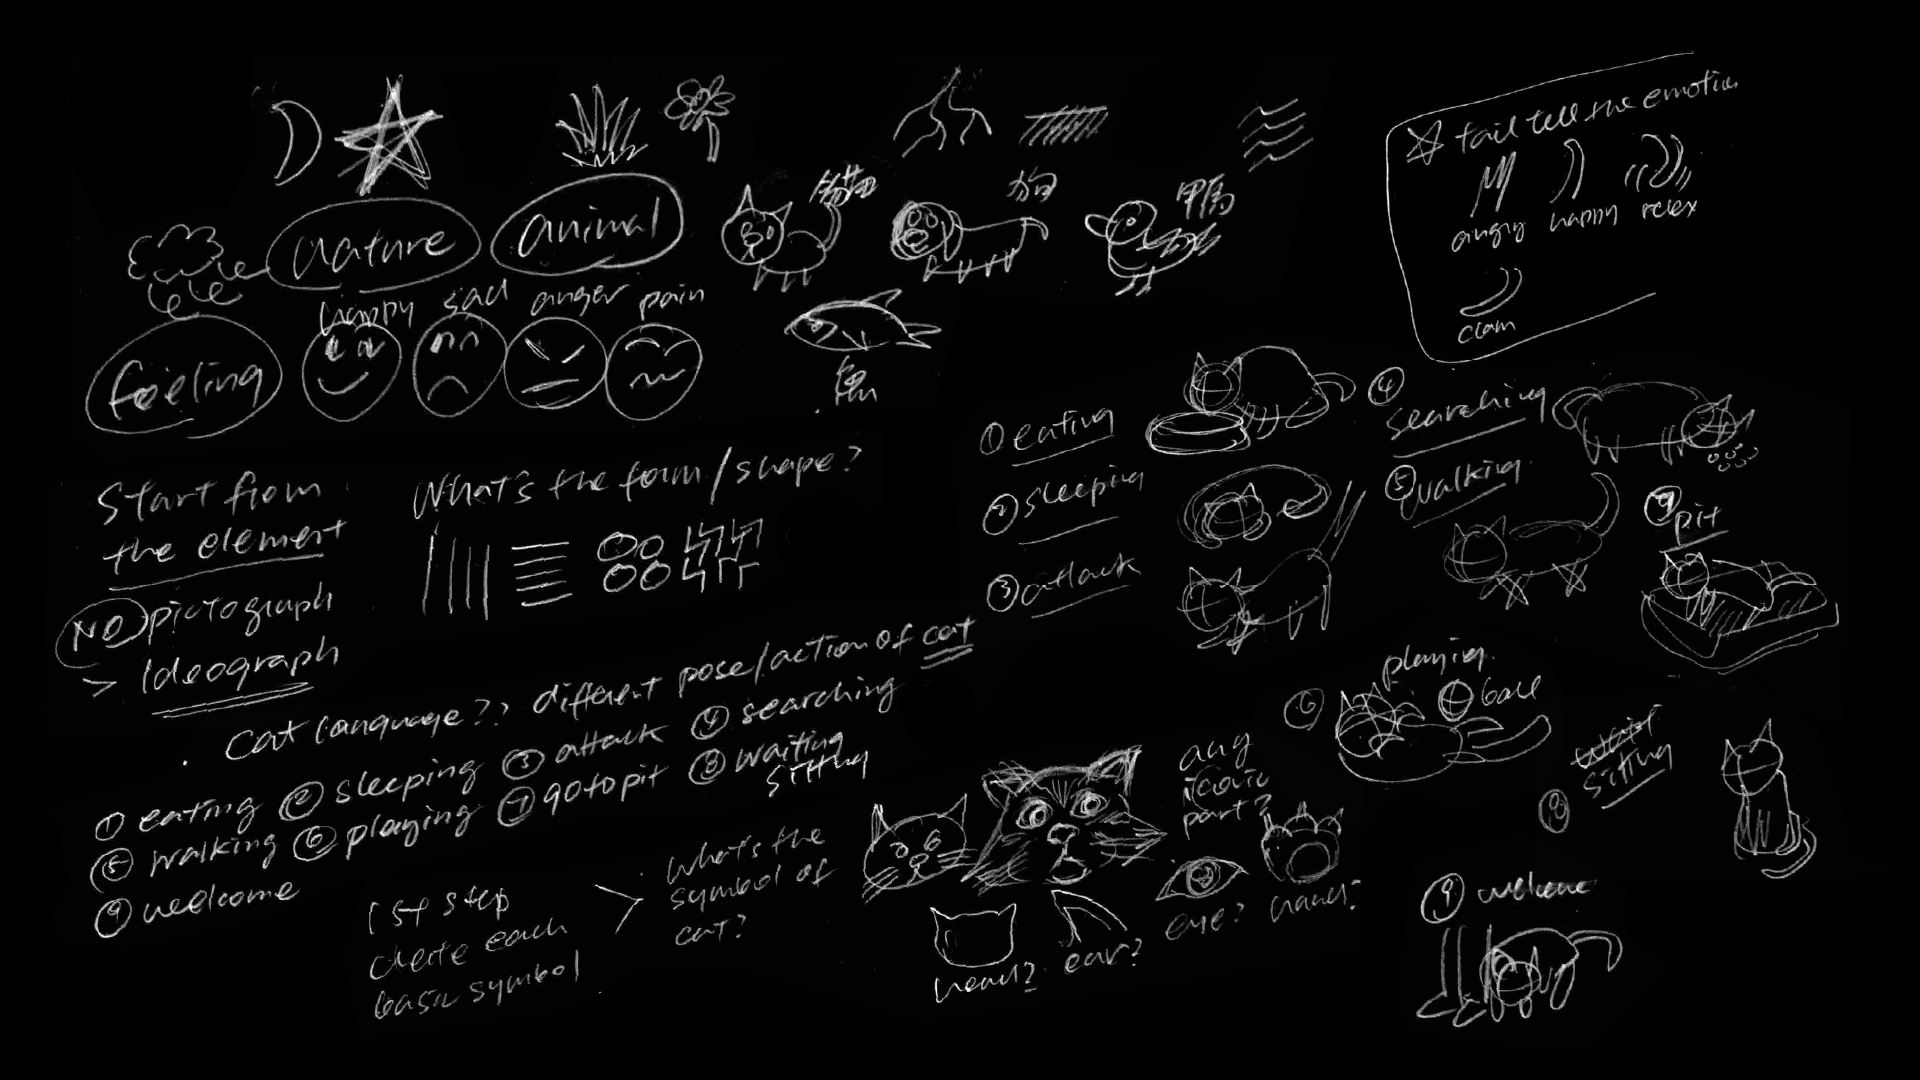 nature
animal
貓
狗
鴨
魚
happy sad anger pain
feeling
☆ tail tell the emotion
angry happy relex
clam
Start from
the element
NO pictograph
> Ideograph
What's the form/shape?
cat language?? different pose/action of cat
① eating ② sleeping ③ attack ④ searching
⑤ walking ⑥ playing ⑦ go to pit ⑧ waiting
sitting
⑨ welcome
1st step
create each
basic symbol
>
what's the
symbol of
cat?
any
iconic
part?
head? ear? eye? hand?
① eating
② sleeping
③ attack
④
searching
⑤ walking
⑥
playing
ball
pit
⑧
wait
sitting
⑨ welcome